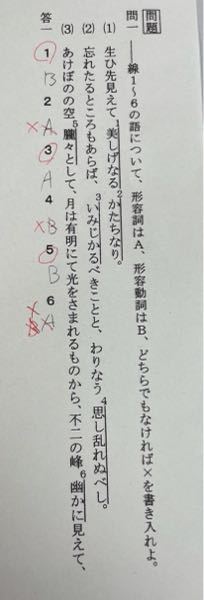 問題
問一 ――線1～6の語について、形容詞はA、形容動詞はB、どちらでもなければ×を書き入れよ。
(1) 生ひ先見えて1美しげなる2かたちなり。
(2) 忘れたるところもあらば、3いみじかるべきことと、わりなう4思し乱れぬべし。
(3) あけぼのの空5朧々として、月は有明にて光をさまれるものから、不二の峰6幽かに見えて、
答一 1 B 2 A × 3 A 4 B × 5 B 6 A ×